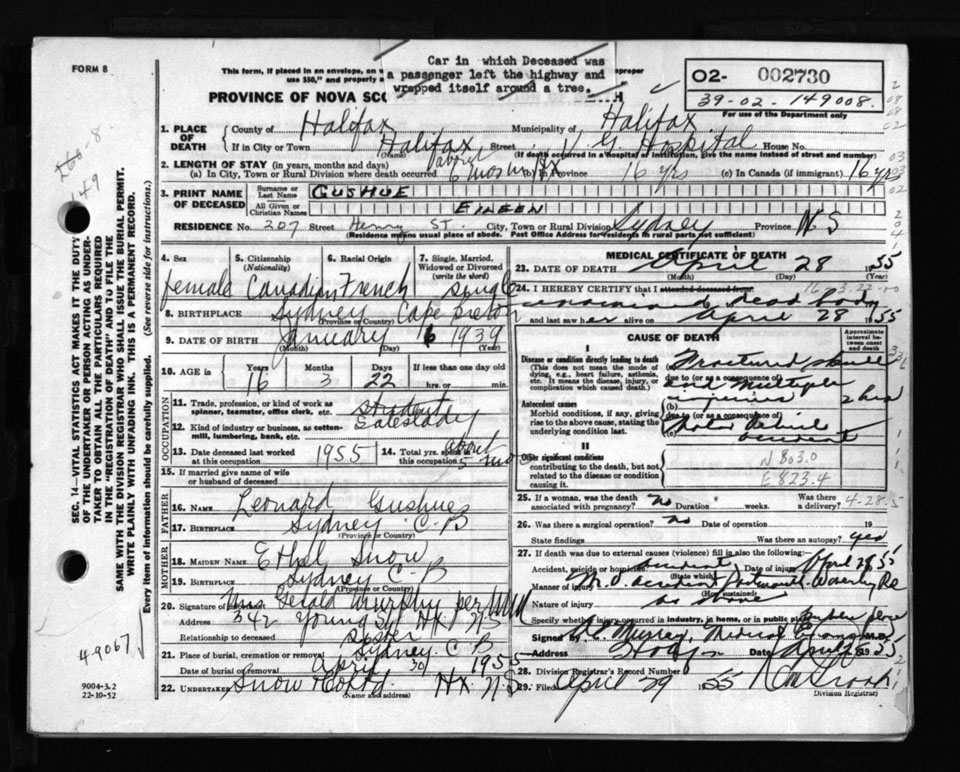 FORM 8
This form, if placed in an envelope, on
use $50," and properly a
Car in which Deceased was
a passenger left the highway and
wrapped itself around a tree.
proper
02- 002730
39-02-149008.
For use of the Department only
PROVINCE OF NOVA SCO H
1. PLACE OF DEATH
County of Halifax Municipality of Halifax
If in City or Town Halifax Street V. G. Hospital House No.
(Name) (If death occurred in a hospital or institution, give the name instead of street and number)
2. LENGTH OF STAY (in years, months and days)
(a) In City, Town or Rural Division where death occurred about 6 mos in HX (b) In Province 16 yrs (c) In Canada (if immigrant) 16 yrs
3. PRINT NAME OF DECEASED
Surname or Last Name GUSHUE
All Given or Christian Names EILEEN
RESIDENCE No. 207 Street Henry ST. City, Town or Rural Division Sydney Province N S
(Residence means usual place of abode. Post Office Address for residents in rural parts not sufficient)
4. Sex female
5. Citizenship (Nationality) Canadian
6. Racial Origin French
7. Single, Married, Widowed or Divorced (write the word) single
8. BIRTHPLACE Sydney Cape Breton
(Province or Country)
9. DATE OF BIRTH January 6 1939
(Month) (Day) (Year)
10. AGE is Years 16 Months 3 Days 22 If less than one day old
hrs. or min.
OCCUPATION
11. Trade, profession, or kind of work as spinner, teamster, office clerk, etc. student
12. Kind of industry or business, as cotten-mill, lumbering, bank, etc. Saleslady
13. Date deceased last worked at this occupation 1955 14. Total yrs. spent in this occupation about 5 mos
15. If married give name of wife or husband of deceased
FATHER
16. Name Leonard Gushue
17. Birthplace Sydney C. B
(Province or Country)
MOTHER
18. MAIDEN NAME Ethel Snow
19. BIRTHPLACE Sydney C-B
(Province or Country)
20. Signature of Mrs Gerald Murphy per
Address 342 Young St HX N S
Relationship to deceased sister
21. Place of burial, cremation or removal Sydney. C B
Date of burial or removal April 30 1955
22. UNDERTAKER Snow & Co Ltd. HX. N.S
(Name and address)
MEDICAL CERTIFICATE OF DEATH
23. DATE OF DEATH April 28 1955
(Month) (Day) (Year)
24. I HEREBY CERTIFY that I attended deceased from
examined dead body
and last saw her alive on April 28 1955
CAUSE OF DEATH
Approximate interval between onset and death
I
Disease or condition directly leading to death
(This does not mean the mode of dying, e.g., heart failure, asthenia, etc. It means the disease, injury, or complication which caused death.)
Fractured skull
due to (or as a consequence of)
and multiple
(b) injuries 2 hrs
Antecedent causes
Morbid conditions, if any, giving rise to the above cause, stating the underlying condition last.
due to (or as a consequence of)
(c) Motor vehicle
accident
II
Other significant conditions
contributing to the death, but not related to the disease or condition causing it.
N 803.0
E 823.4
25. If a woman, was the death associated with pregnancy? no Duration weeks. Was there a delivery? 4-28-5
26. Was there a surgical operation? no Date of operation 19
State findings Was there an autopsy? yes
27. If death was due to external causes (violence) fill in also the following:
Accident, suicide or homicide? accident Date of injury April 28 55
(State which)
Manner of injury M.V. accident Dartmouth-Waverley Rd
(How sustained)
Nature of injury as above
Specify whether injury occurred in industry, in home, or in public place public place
Signed Murray, Medical Exam M.D.
Address Hfx Date April 29 1955
28. Division Registrar's Record Number
29. Filed April 29 1955
Division Registrar
SEC. 14—VITAL STATISTICS ACT MAKES IT THE DUTY
OF THE UNDERTAKER OR PERSON ACTING AS UNDERTAKER
TO OBTAIN ALL THE PARTICULARS REQUIRED
IN THE "REGISTRATION OF DEATH" AND TO FILE THE
SAME WITH THE DIVISION REGISTRAR WHO SHALL ISSUE THE BURIAL PERMIT.
WRITE PLAINLY WITH UNFADING INK. THIS IS A PERMANENT RECORD.
Every item of information should be carefully supplied. (See reverse side for instructions.)
149
49067
9004-3.2
22-10-52